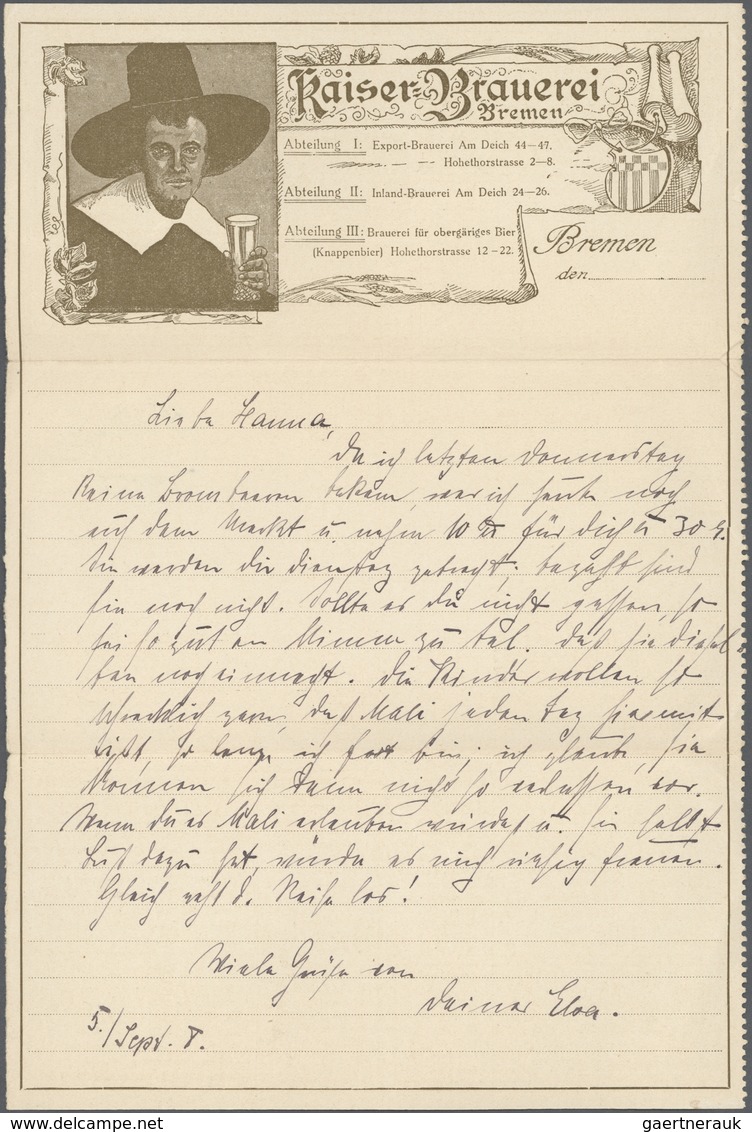 Kaiser-Brauerei
Bremen
Abteilung I: Export-Brauerei Am Deich 44-47.
Hohethorstrasse 2-8.
Abteilung II: Inland-Brauerei Am Deich 24-26.
Abteilung III: Brauerei für obergäriges Bier
(Knappenbier) Hohethorstrasse 12-22.
Bremen
den
Liebe Hanna,
Da ich letzten Donnerstag
keine Brombeeren bekam, war ich heute noch
auf dem Markt u. nahm 10 ℔ für dich à 30 ₰.
Sie werden dir Dienstag gebracht; bezahlt sind
sie noch nicht. Sollte es dir nicht passen, so
sei so gut an Mimm zu tel. daß sie diesel-
ben noch einmacht. Die Kinder wollen so
schrecklich gern, daß Mali jeden Tag hier mit
ißt, so lange ich fort bin; ich glaube, sie
kommen sich dann nicht so verlassen vor.
Wenn du es Mali erlauben würdest u. sie selbst
Lust dazu hat, würde es mich riesig freuen.
Gleich geht d. Reise los!
Viele Grüße von
Deiner Elsa.
5./Sept. 8.
gaertnerauk